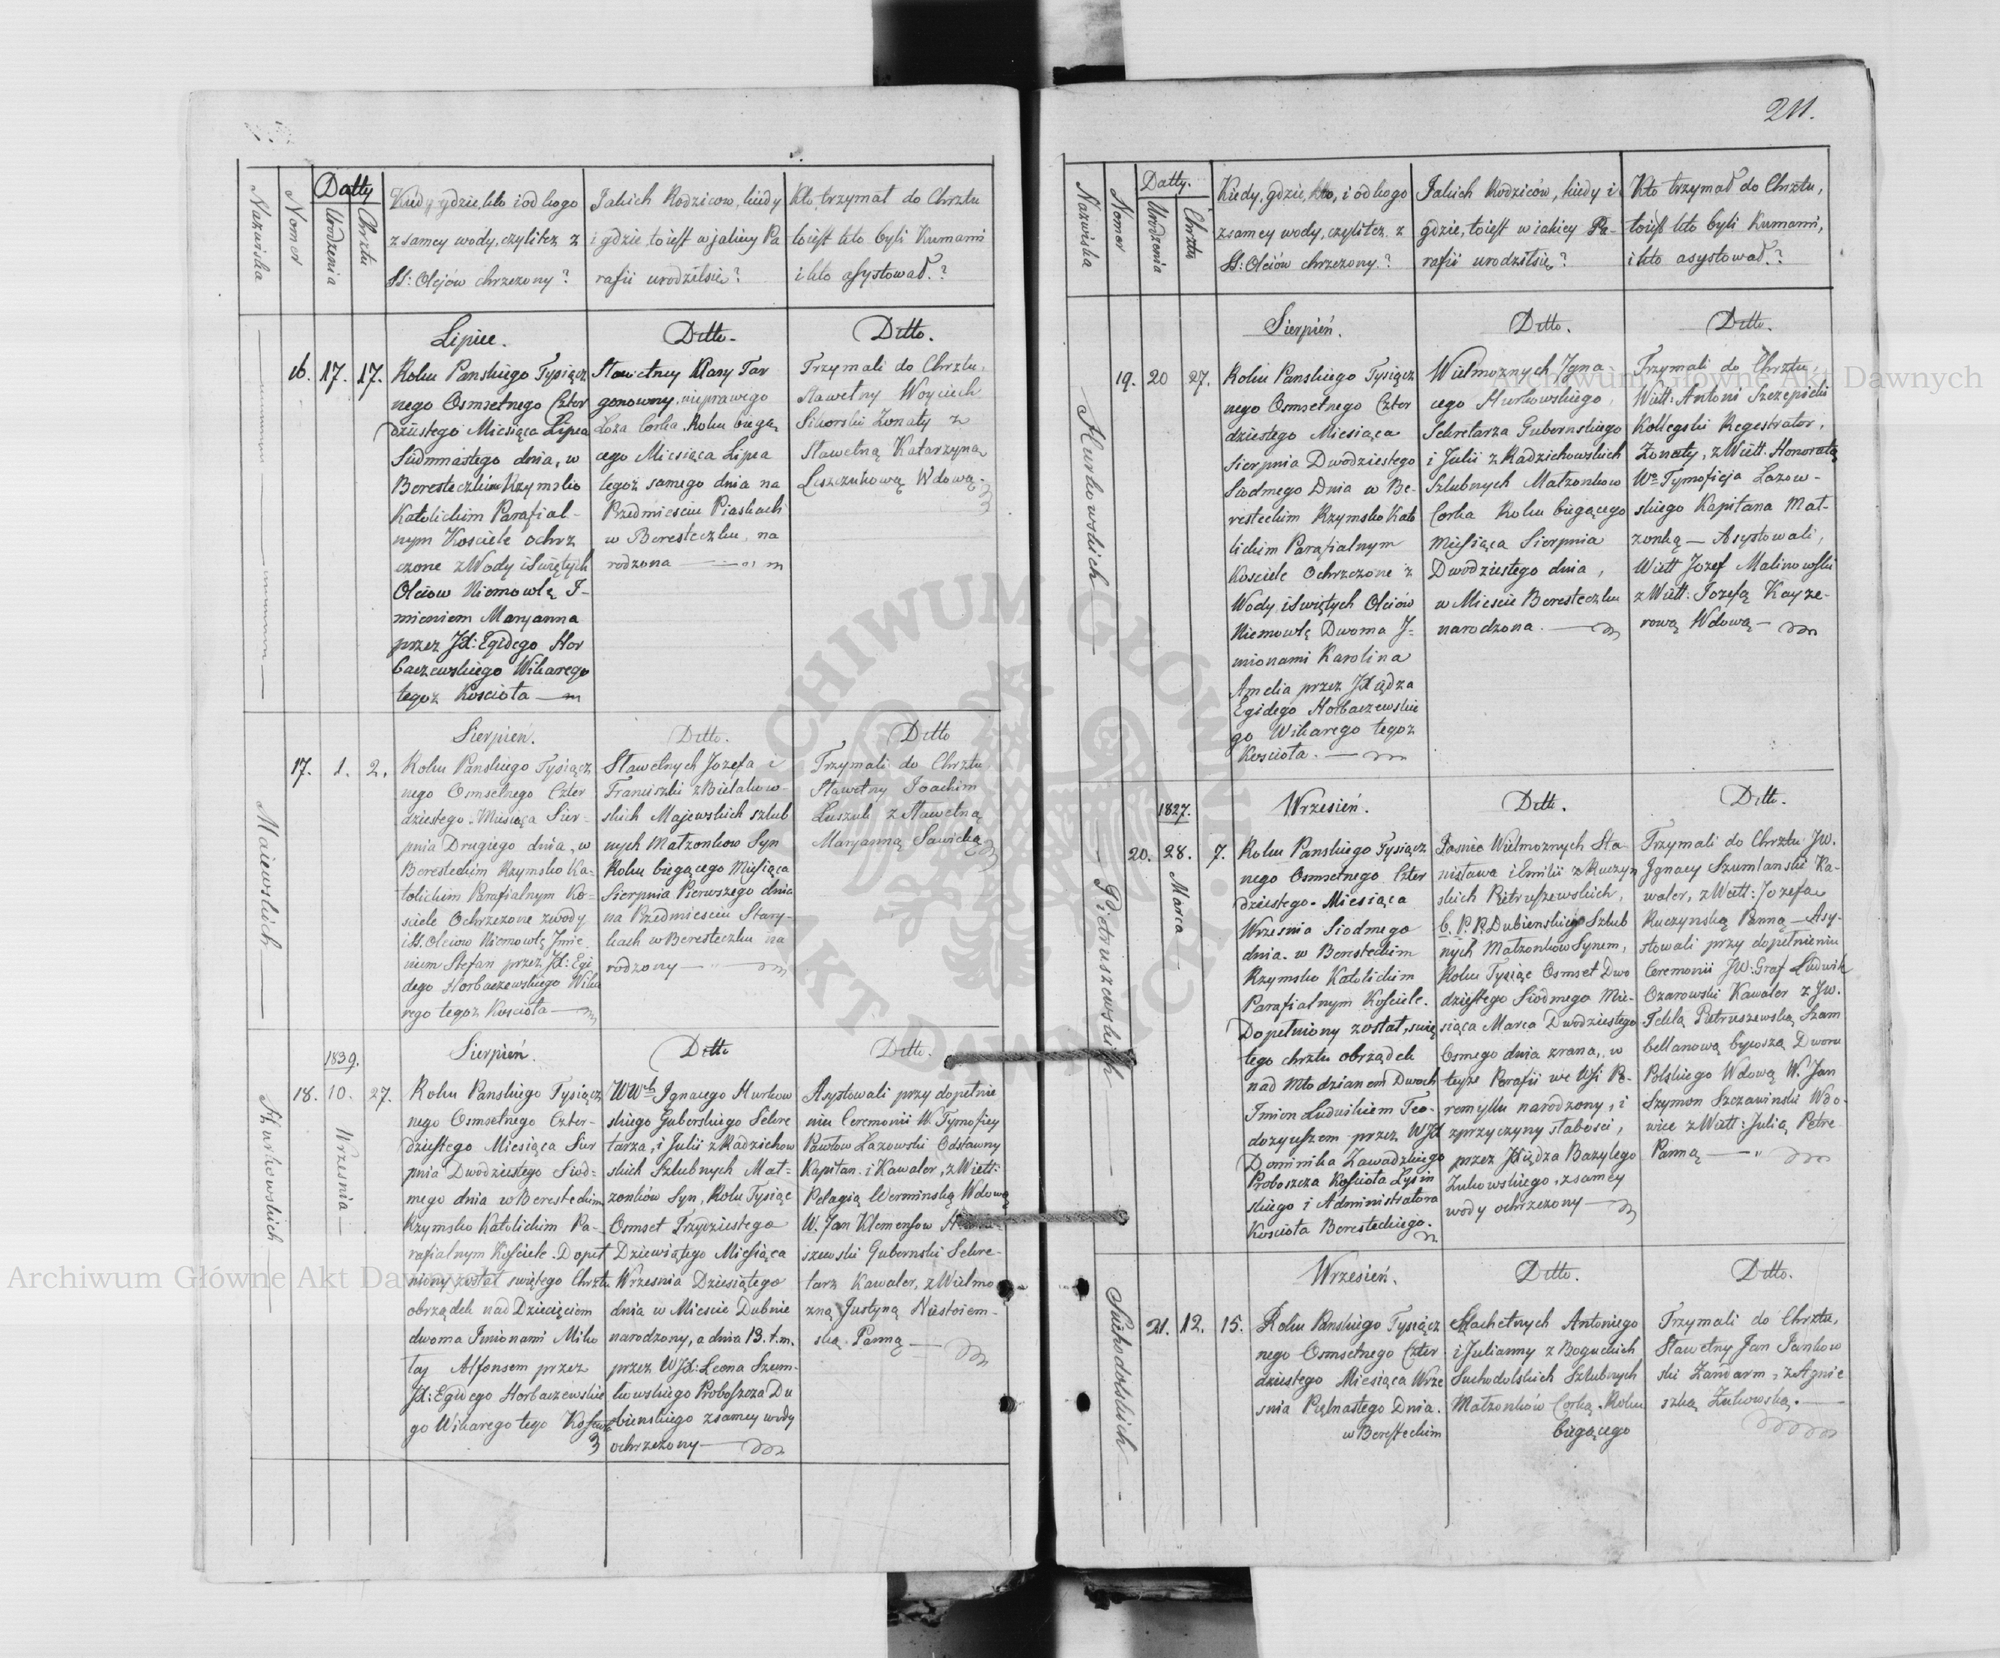 Nazwiska
Nomer
Datty
Urodzenia
Chrztu
Kiedy gdzie, kto i od kogo
z samey wody, czyli też z
SS: Olejów chrzczony?
Jakich Rodzicow, kiedy
i gdzie to iest w jakiey Pa
rafii urodził się?
Kto trzymał do Chrztu
to iest kto byli Kumami
i kto asystował?
Lipiec.
Ditto.
Ditto.
16. 17. 17.
Roku Panskiego Tysiącz
nego Osmsetnego Czter
dziestego Miesiąca Lipca
Siedmnastego dnia, w
Beresteczkim Rzymsko
Katolickim Parafial-
nym Kosciele ochrz
czone z Wody i Swiętych
Oleiow Niemowlę I-
mieniem Maryanna
przez JX: Egidego Hor
baczewskiego Wikarego
tegoz Koscioła
Sławetney Klary Tar
gonowny, nieprawego
Łoza Corka Roku biegą
cego Miesiąca Lipca
tegoż samego dnia na
Przedmiesciu Piaskach
w Beresteczku, na
rodzona
Trzymali do Chrztu,
Sławetny Woyciech
Sikorski Zonaty z
Sławetną Katarzyną
Leszczukową Wdową.
Sierpień.
Ditto.
Ditto
Maiewskich
17. 1. 2.
Roku Panskiego Tysiącz
nego Osmsetnego Czter
dziestego Miesiąca Sier-
pnia Drugiego dnia, w
Beresteckim Rzymsko Ka-
tolickim Parafialnym Ko-
sciele Ochrzczone z wody
i SS. Oleiow Niemowlę Imie
niem Stefan przez JX: Egi
dego Horbaczewskiego Wika
rego tegoz Koscioła
Sławetnych Jozefa i
Franciszki z Bielakow-
skich Majewskich szlub
nych Małzonkow Syn
Roku biegącego Miesiąca
Sierpnia Pierwszego dnia
na Przedmiesciu Stary-
kach w Beresteczku na
rodzony
Trzymali do Chrztu
Sławetny Joachim
Łuszuk z Sławetną
Maryanną Sawicką
Sierpień.
Ditto
Ditto.
Hurkowskich
1839.
18. 10. 27.
Wrzesnia
Roku Panskiego Tysiącz
nego Osmsetnego Czter-
dziestego Miesiąca Sier
pnia Dwodziestego Siod-
mego dnia w Beresteckim
Rzymsko Katolickim Pa-
rafialnym Kosciele. Dopeł
niony został swiętego Chrztu
obrządek nad Dziecięciem
dwoma Imionami Miko
łaj Alfonsem przez
JX: Egidego Horbaczewskie
go Wikarego tego
WWch Ignacego Hurkow
skiego Guberskiego Sekre
tarza, i Julii z Radziehow
skich Szlubnych Mał-
zonków Syn, Roku Tysiąc
Osmset Trzydziestego
Dziewiątego Miesiąca
Wrzesnia Dziesiątego
dnia w Miescie Dubnie
narodzony, a dnia 13. t.m.
przez WJX: Leona Szum-
kowskiego Proboszcza Du
bienskiego z samey wody
ochrzczony
Asystowali przy dopełnie
niu Ceremonii W. Tymofiey
Pawłow Łazowski Odstawny
Kapitan i Kawaler, z Wielł:
Pelagią Werminską Wdową
W. Jan Klemensow
szewski Gubernski Sekre-
tarz Kawaler, z Wielmo
zną Justyną
ską Panną
211.
Nazwiska
Nomer
Datty.
Urodzenia
Chrztu
Kiedy, gdzie, kto, i od kogo
z samey wody, czyli też z
SS: Oleiów chrzczony?
Jakich Rodziców, kiedy i
gdzie, to iest w iakiey Pa-
rafii urodził się?
Kto trzymał do Chrztu,
to iest kto byli Kumami,
i kto asystował?
Sierpień.
Ditto.
Ditto.
Hurkowskich
19. 20 27.
Roku Panskiego Tysiącz
nego Osmsetnego Czter
dziestego Miesiąca
Sierpnia Dwodziestego
Siodmego Dnia w Be-
resteckim Rzymsko Kato
lickim Parafialnym
Kosciele Ochrzczone z
Wody i Swiętych Oleiów
Niemowlę Dwoma I-
mionami Karolina
Amelia przez Xiądza
Egidego Horbaczewskie
go Wikarego tegoz
Koscioła.
Wielmoznych Igna
cego Hurkowskiego,
Sekretarza Gubernskiego
i Julii z Radziehowskich
Szlubnych Małzonkow
Corka Roku biegącego
Miesiąca Sierpnia
Dwodziestego dnia,
w Miescie Beresteczku
narodzona.
Trzymali do Chrztu,
Wiell: Antoni Szczepicki
Kollegski Regestrator,
Zonaty, z Wiell: Honoratą
Wo Tymofieja Łazow-
skiego Kapitana Mał-
zonką — Asystowali,
Wiell Jozef Malinowski
z Wiell: Jozefą Kayze-
rową Wdową
Wrzesień.
Ditto.
Ditto.
Pietruszewskich
1827.
20. 28. 7.
Marca
Roku Panskiego Tysiącz
nego Osmsetnego Czter
dziestego Miesiąca
Wrzesnia Siodmego
dnia w Beresteckim
Rzymsko Katolickim
Parafialnym Kosciele.
Dopełniony został, swię
tego chrztu obrządek
nad Młodzianem Dwoch
Imion Ludwikiem Teo-
dozyuszem przez WJX
Dominika Zawadzkiego
Proboszcza Koscioła Łysin
skiego i Administratora
Koscioła Beresteckiego.
Jasnie Wielmoznych Sta-
nisława i Emilii z Ruczyn
skich Pietruszewskich,
b. P. P. Dubienskiego Szlub
nych Małzonkow Synem,
Roku Tysiąc Osmset Dwo
dziestego Siodmego Mie-
siąca Marca Dwodziestego
Osmego dnia zrana, w
teyze Parafii we Wsi Pe-
remyłlu narodzony, i
z przyczyny słabosci,
przez Xiędza Bazylego
Zukowskiego, z samey
wody ochrzczony
Trzymali do Chrztu JW.
Ignacy Szumlanski Ka-
waler, z Wiell: Jozefą
Ruczynską Panną — Asy-
stowali przy dopełnieniu
Ceremonii JW: Graf Ludwik
Ożarowski Kawaler z JW.
Teklą Pietruszewską Szam
bellanową bywszą Dworu
Polskiego Wdową W. Jan
Szymon Szczawinski Wdo-
wiec z Wiell: Julią Petre
Panną
Wrzesień.
Ditto.
Ditto.
Suchodolskich
21. 12. 15.
Roku Panskiego Tysiącz
nego Osmsetnego Czter
dziestego Miesiąca Wrze
snia Piętnastego Dnia.
w Beresteckim
Szlachetnych Antoniego
i Julianny z Boguckich
Suchodolskich Szlubnych
Małzonków Corką. Roku
biegącego
Trzymali do Chrztu,
Sławetny Jan Jankow
ski Zandarm, z Agnie
szką Zukowską.
Archiwum Główne Akt Dawnych
Archiwum Główne Akt Dawnych
ARCHIWUM GŁÓWNE AKT DAWNYCH